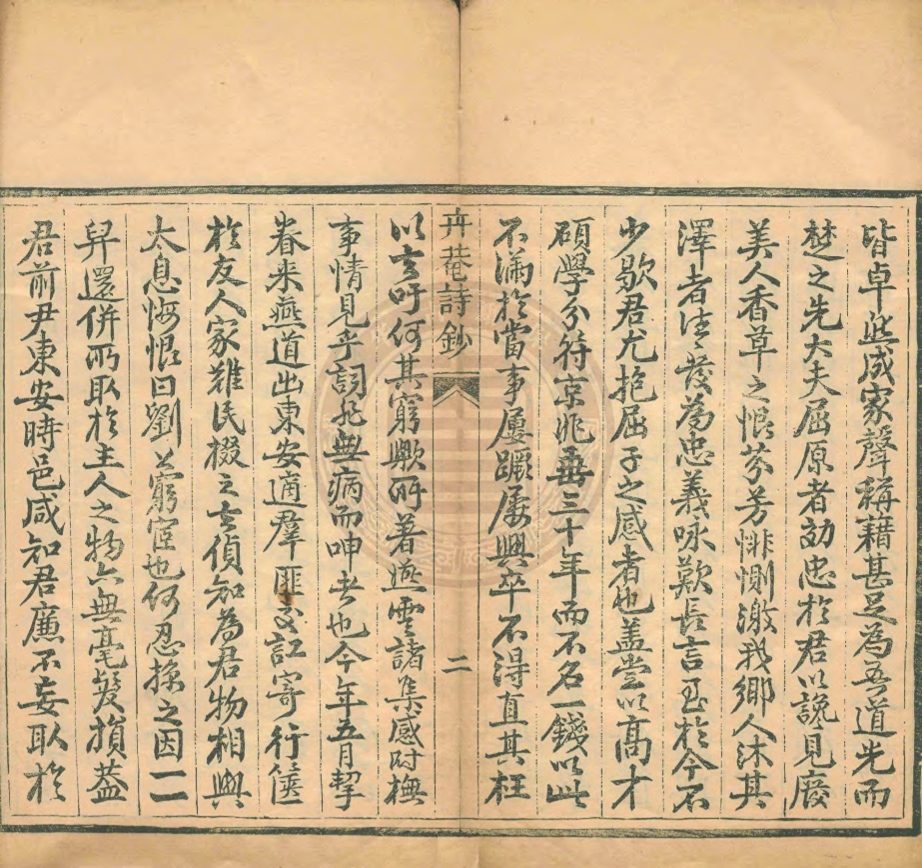 皆卓然成家聲稱藉甚足為吾道先而
楚之先大夫屈原者効忠於君以讒見廢
美人香草之恨芬芳悱惻激我鄉人沐其
澤者往往發為忠義咏歎長言至於今不
少歇君尤抱屈子之感者也盖嘗以高才
碩學分符京兆垂三十年而不名一錢以此
不滿於當事屢蹶屢興卒不得直其枉
卉菴詩鈔
二
以去吁何其窮歟所著燕雲諸集感時撫
事情見乎詞非無病而呻者也今年五月挈
眷来燕道出東安適羣匪交訌寄行篋
於友人家難民掇之去偵知為君物相與
太息悔恨曰劉公窮官也何忍掠之因一一
舁還併所取於主人之物亦無毫髮損葢
君前尹東安時邑咸知君廉不妄取於